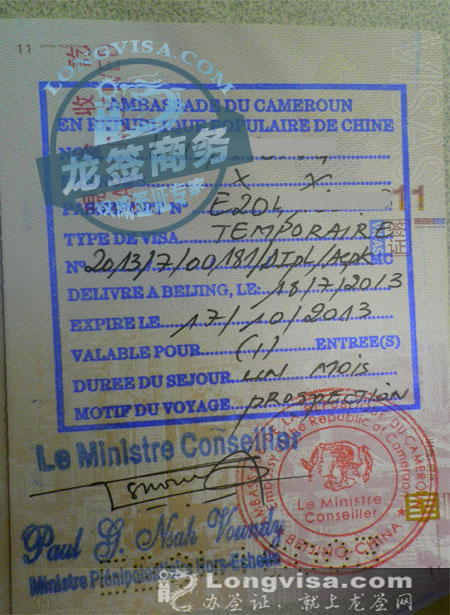 11
LONGVISA.COM
龙签商务
AMBASSADE DU CAMEROUN
EN REPUBLIQUE POPULAIRE DE CHINE
X X
N° E204
11
TYPE DE VISA TEMPORAIRE
N° 2013/7/00/181/DIPL/ACPK MC
DELIVRE A BEIJING, LE: 18/7/2013
EXPIRE LE 17/10/2013
VALABLE POUR (1) ENTREE(S)
DUREE DU SEJOUR UN MOIS
MOTIF DU VOYAGE PROSPECTION
Le Ministre Conseiller
Embassy of the Republic of Cameroon
Le Ministre
Conseiller
BEIJING-CHINA
Paul G. Nsah Voundy
Ministre Plénipotentiaire Hors-Echelle
Longvisa.com
办签证，就上龙签网